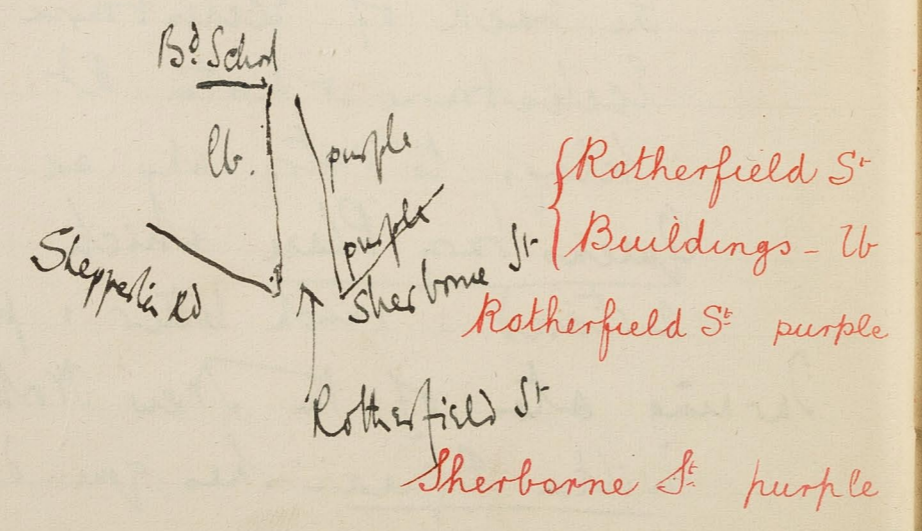 Bd School
lb.
purple
purple
Shepperton Rd
Sherborne St
Rotherfield St
Rotherfield St
Buildings - lb
Rotherfield St purple
Sherborne St purple